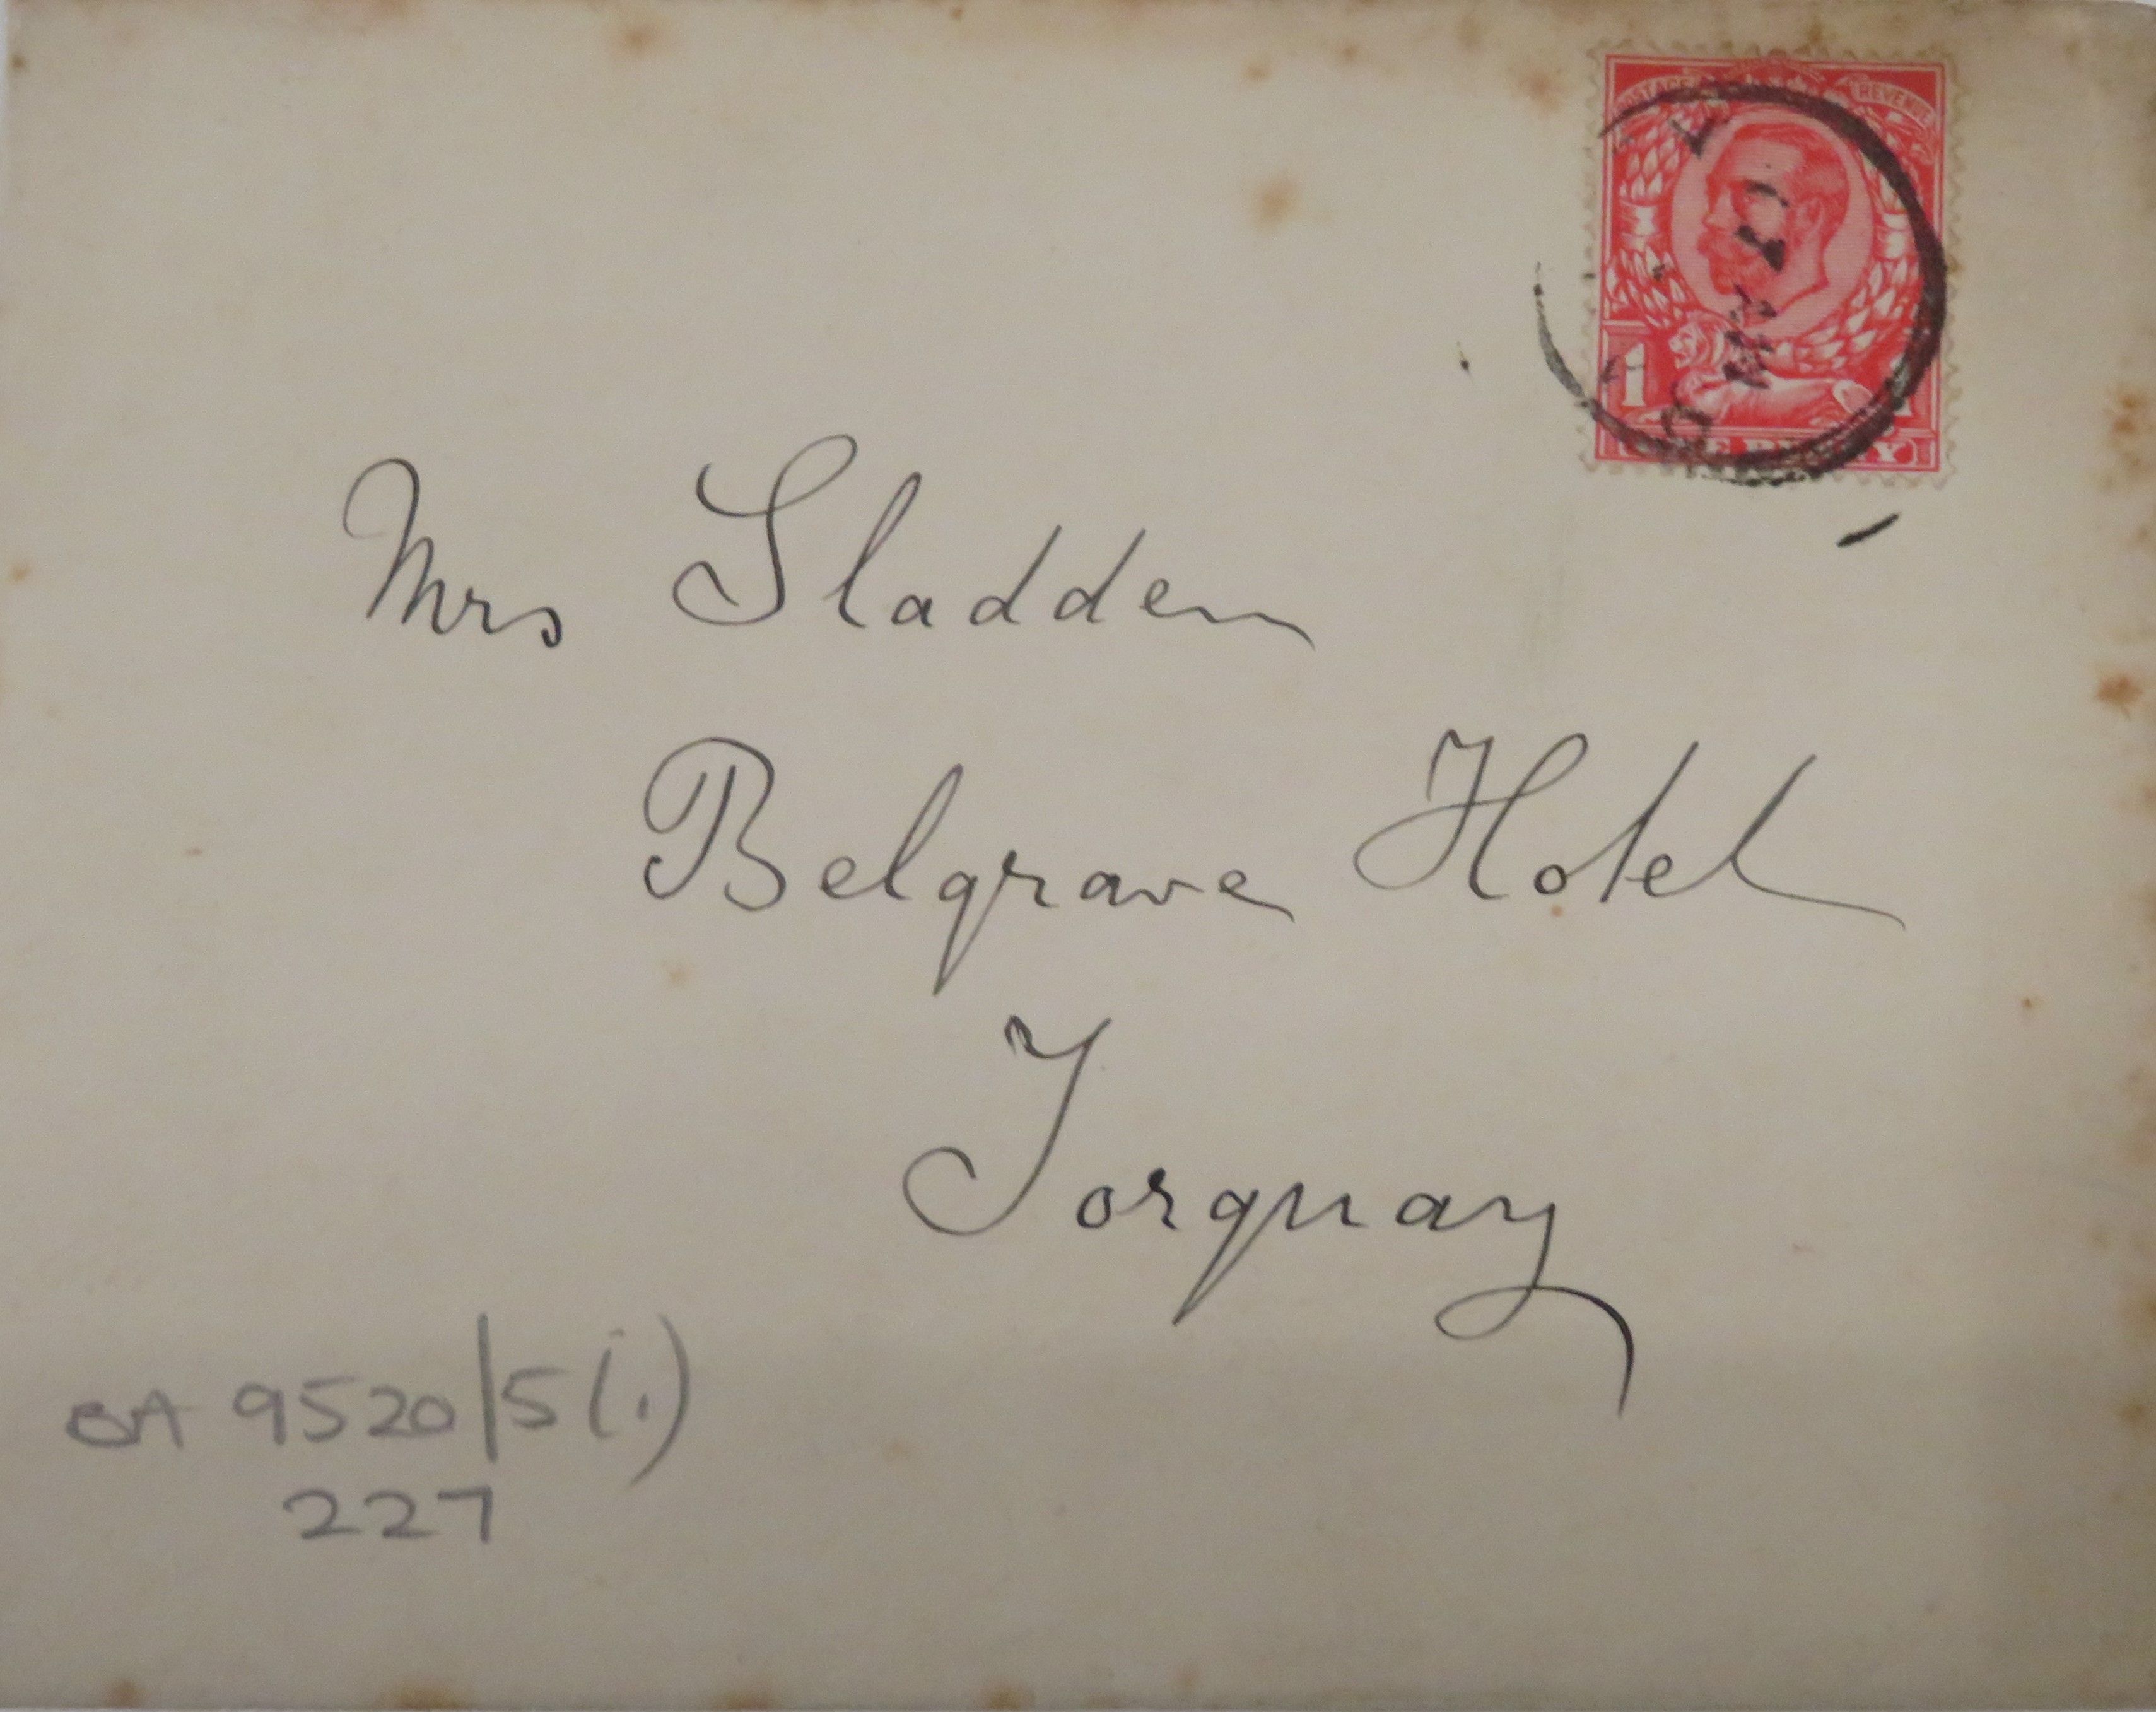 POSTAGE REVENUE
1
MY 19
Mrs Sladden
Belgrave Hotel
Torquay
BA 9520/5(i)
227